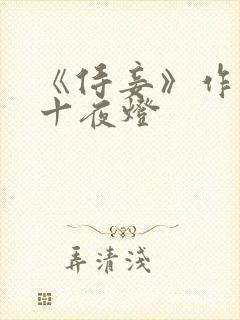 《侍妾》作
十夜燈
弄清淺